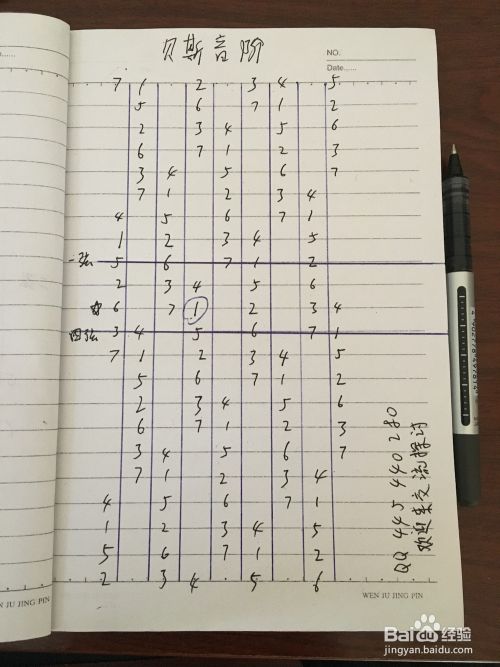 贝斯音阶
NO.
Date......
7 1 2 3 4 5
5 6 7 1 2
2 3 4 5 6
6 7 1 2 3
3 4 5 6 7
7 1 2 3 4
4 5 6 7 1
1 2 3 4 5
一弦 5 6 7 1 2
2 3 4 5 6
☆ 6 7 1 2 3 4
四弦 3 4 5 6 7 1
7 1 2 3 4 5
5 6 7 1 2
2 3 4 5 6
6 7 1 2 3
3 4 5 6 7
7 1 2 3 4
4 5 6 7 1
1 2 3 4 5
5 6 7 1 2
2 3 4 5 6
QQ 445440280
欢迎来交流探讨
WEN JU JING PIN
WEN JU JING PIN
Baidu 经验
jingyan.baidu.com